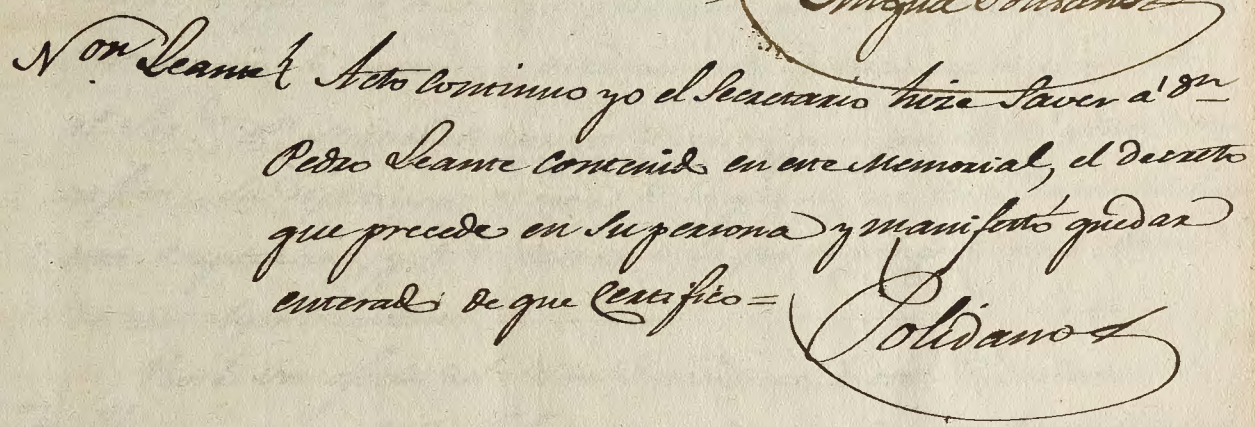 Solidano
Non Leante Acto Continuo yo el Secretario hize Saver á Dn
Pedro Leante Contenido en este Memorial, el Decreto
que precede en Su persona y manifestó quedar
enterado de que Certifico =
Solidano